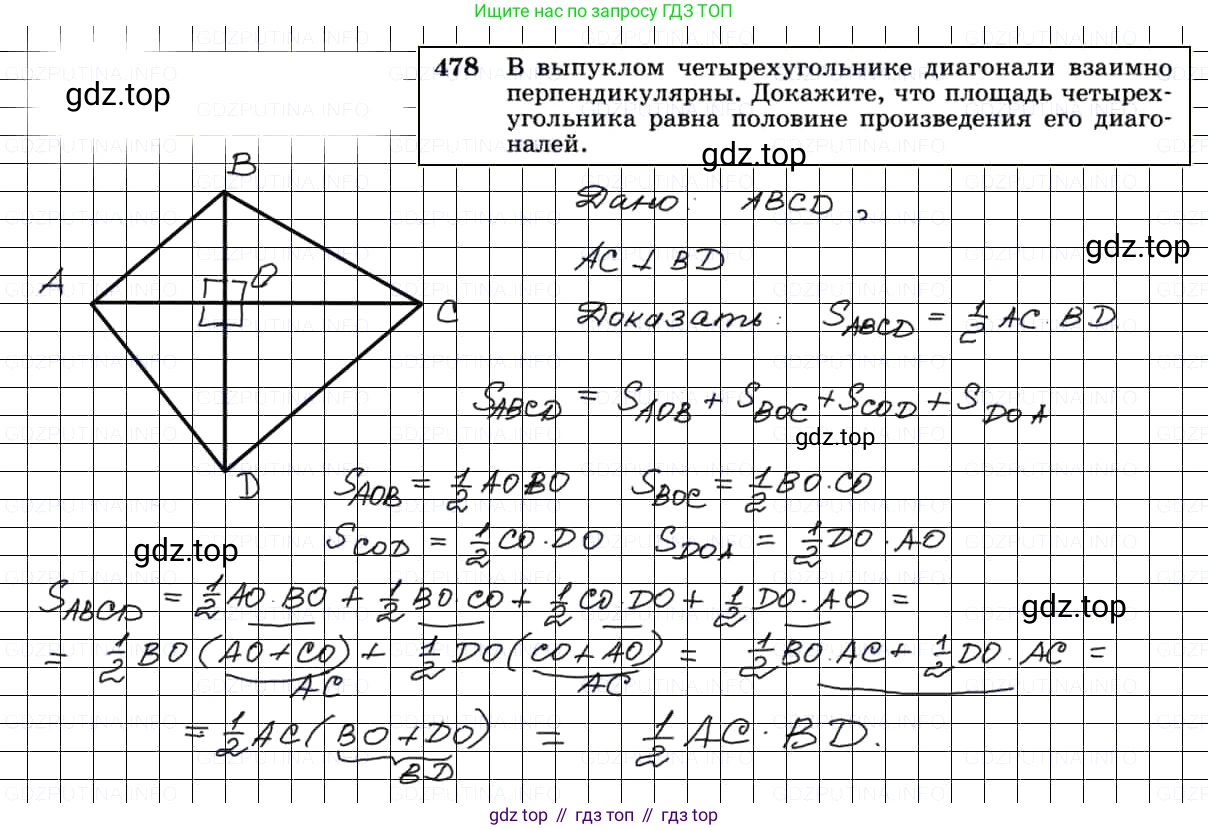 Ищите нас по запросу ГДЗ ТОП
478 В выпуклом четырехугольнике диагонали взаимно
перпендикулярны. Докажите, что площадь четырех-
угольника равна половине произведения его диаго-
налей.
gdz.top
gdz.top
B
Дано: ABCD,
AC ⊥ BD
gdz.top
A
O
C
Доказать: S_ABCD = 1/2 AC · BD
S_ABCD = S_AOB + S_BOC + S_COD + S_DOA
gdz.top
D
S_AOB = 1/2 AO·BO S_BOC = 1/2 BO·CO
gdz.top
S_COD = 1/2 CO·DO S_DOA = 1/2 DO·AO
S_ABCD = 1/2 AO·BO + 1/2 BO·CO + 1/2 CO·DO + 1/2 DO·AO =
gdz.top
= 1/2 BO(AO+CO) + 1/2 DO(CO+AO) = 1/2 BO·AC + 1/2 DO·AC =
AC AC
= 1/2 AC(BO+DO) = 1/2 AC·BD.
BD
gdz top // гдз топ // gdz.top
GDZPUTINA.INFO